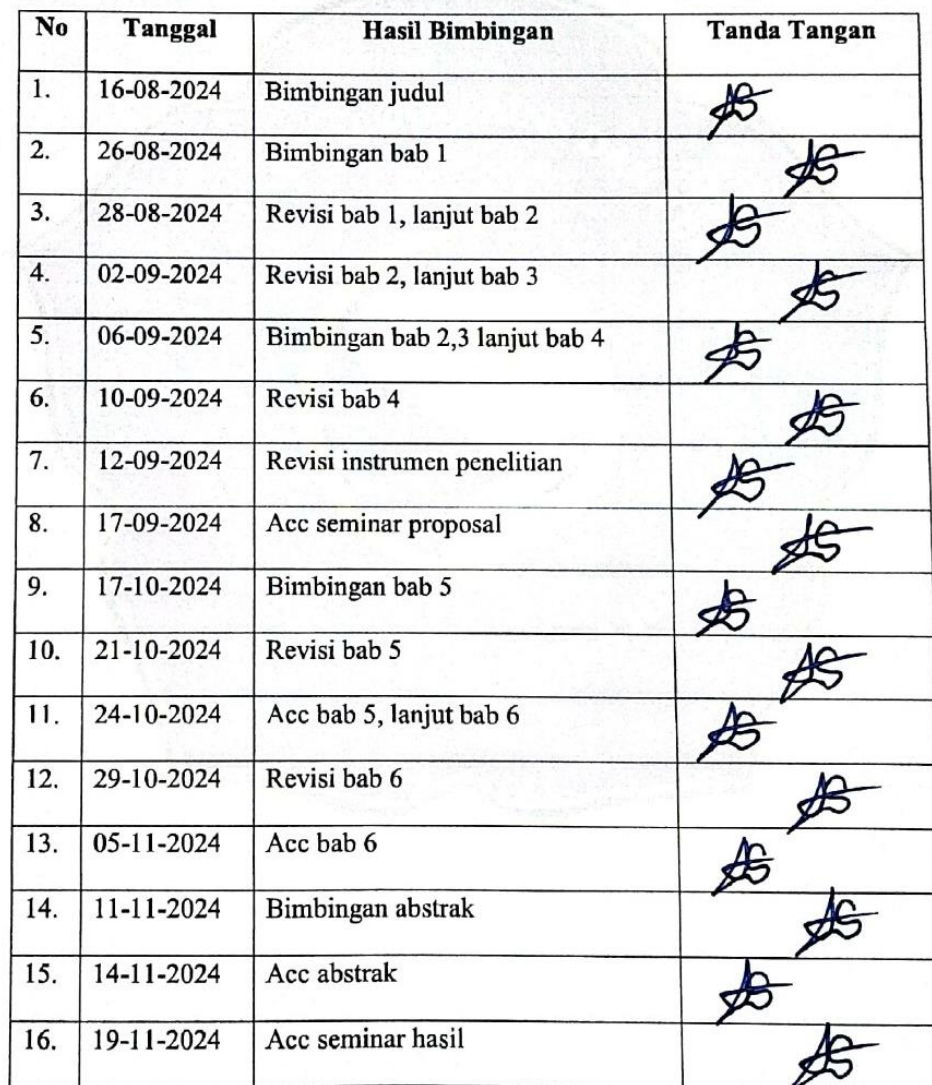 No Tanggal Hasil Bimbingan Tanda Tangan
1. 16-08-2024 Bimbingan judul
2. 26-08-2024 Bimbingan bab 1
3. 28-08-2024 Revisi bab 1, lanjut bab 2
4. 02-09-2024 Revisi bab 2, lanjut bab 3
5. 06-09-2024 Bimbingan bab 2,3 lanjut bab 4
6. 10-09-2024 Revisi bab 4
7. 12-09-2024 Revisi instrumen penelitian
8. 17-09-2024 Acc seminar proposal
9. 17-10-2024 Bimbingan bab 5
10. 21-10-2024 Revisi bab 5
11. 24-10-2024 Acc bab 5, lanjut bab 6
12. 29-10-2024 Revisi bab 6
13. 05-11-2024 Acc bab 6
14. 11-11-2024 Bimbingan abstrak
15. 14-11-2024 Acc abstrak
16. 19-11-2024 Acc seminar hasil